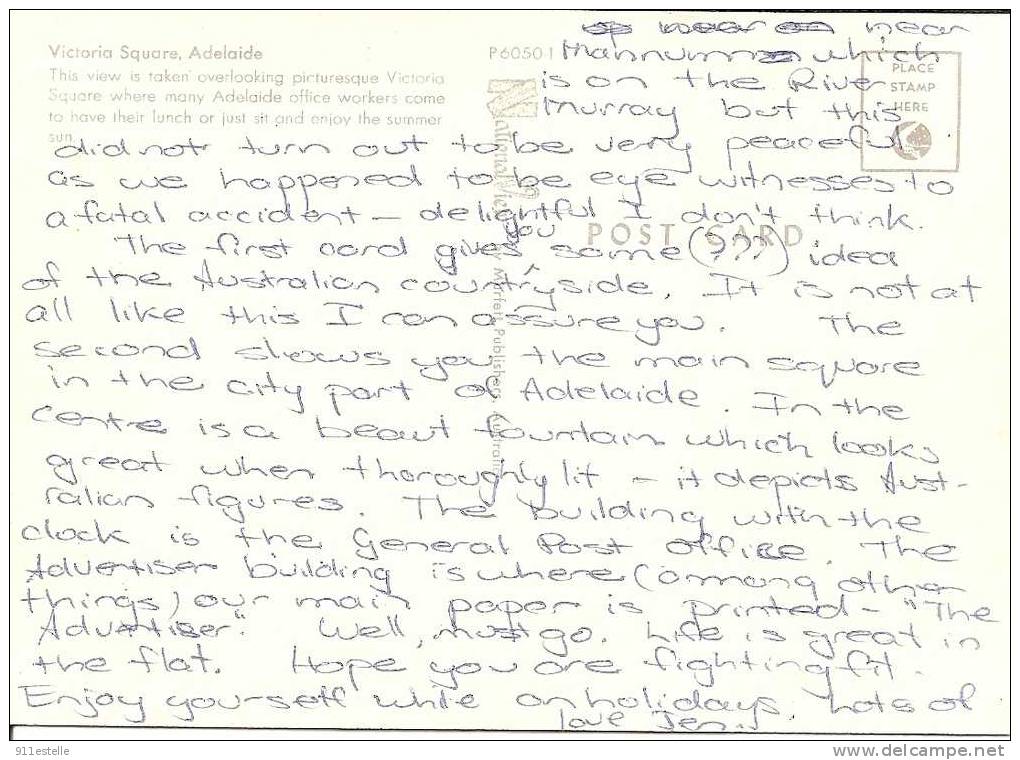 near
Victoria Square, Adelaide
P6050-1
Mannum which
This view is taken overlooking picturesque Victoria
Square where many Adelaide office workers come
to have their lunch or just sit and enjoy the summer
sun.
PLACE
STAMP
HERE
is on the River
Murray but this
did not turn out to be very peaceful
as we happened to be eye witnesses to
a fatal accident – delightful I don't think.
POST CARD
The first card gives you some (???) idea
of the Australian countryside. It is not at
all like this I can assure you. The
second shows you the main square
in the city part of Adelaide. In the
centre is a beaut fountain which looks
great when thoroughly lit – it depicts Aust-
ralian figures. The building with the
clock is the General Post Office. The
Advertiser building is where (among other
things) our main paper is printed – "The
Advertiser". Well, must go. Life is great in
the flat. Hope you are fighting fit.
Enjoy yourself while on holidays. Lots of
love Jen.
911estelle
www.delcampe.net